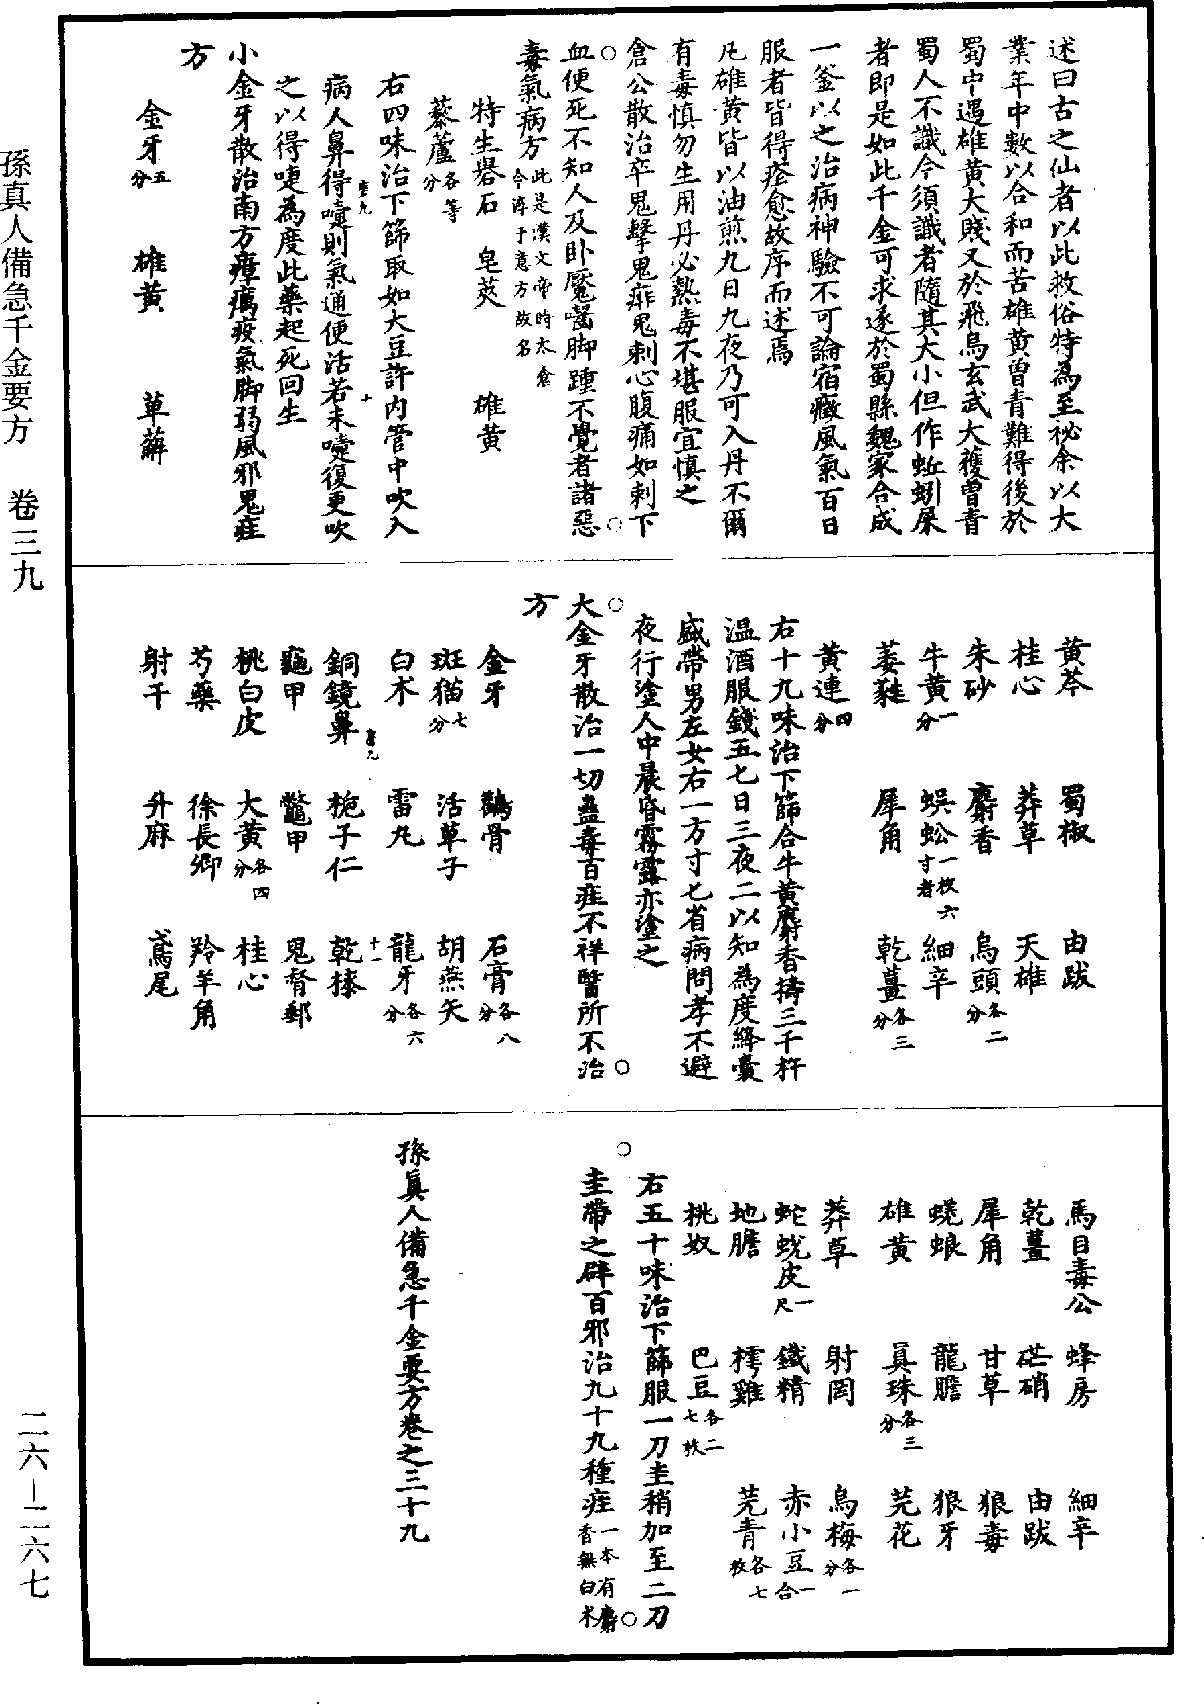 述曰古之仙者以此救俗特為至祕余以大
業年中數以合和而苦雄黃曾青難得後於
蜀中遇雄黃大賤又於飛烏玄武大獲曾青
蜀人不識今須識者隨其大小但作蚯蚓屎
者即是如此千金可求遂於蜀縣魏家合成
一釜以之治病神驗不可論宿癥風氣百日
服者皆得痊愈故序而述焉
凡雄黃皆以油煎九日九夜乃可入丹不爾
有毒慎勿生用丹必熱毒不堪服宜慎之
倉公散治卒鬼擊鬼痱鬼刺心腹痛如刺下
○血便死不知人及卧魘嚙脚踵不覺者諸惡○
毒氣病方 此是漢文帝時太倉令淳于意方故名
特生礜石 皂莢 雄黃
藜蘆各等分
右四味治下篩取如大豆許內管中吹入
病人鼻得嚏則氣通便活若未嚏復更吹
之以得嚏為度此藥起死回生
小金牙散治南方瘴癘疫氣脚弱風邪鬼疰
方
金牙五分 雄黃 萆薢
黃芩 蜀椒 由跋
桂心 莽草 天雄
朱砂 麝香 烏頭各二分
牛黃一分 蜈蚣一枚六寸者 細辛
萎蕤 犀角 乾薑各三分
黃連四分
右十九味治下篩合牛黃麝香擣三千杵
溫酒服錢五七日三夜二以知為度絳囊
盛帶男左女右一方寸匕省病問孝不避
夜行塗人中晨昏霧露亦塗之
○大金牙散治一切蠱毒百疰不祥醫所不治○
方
金牙 鸛骨 石膏各八分
斑猫七分 活草子 胡燕矢
白朮 雷丸 龍牙各六分
銅鏡鼻 梔子仁 乾漆
龜甲 鱉甲 鬼督郵
桃白皮 大黃各四分 桂心
芍藥 徐長卿 羚羊角
射干 升麻 鳶尾
馬目毒公 蜂房 細辛
乾薑 芒硝 由跋
犀角 甘草 狼毒
蜣蜋 龍膽 狼牙
雄黃 真珠各三分 芫花
莽草 射罔 烏梅各一分
蛇蛻皮一尺 鐵精 赤小豆一合
地膽 樗雞 芫青各七枚
桃奴 巴豆各二七枚
右五十味治下篩服一刀圭稍加至二刀
○圭帶之辟百邪治九十九種疰 一本有麝香無白朮○
孫真人備急千金要方卷之三十九
孫真人備急千金要方 卷三九
二六—二六七